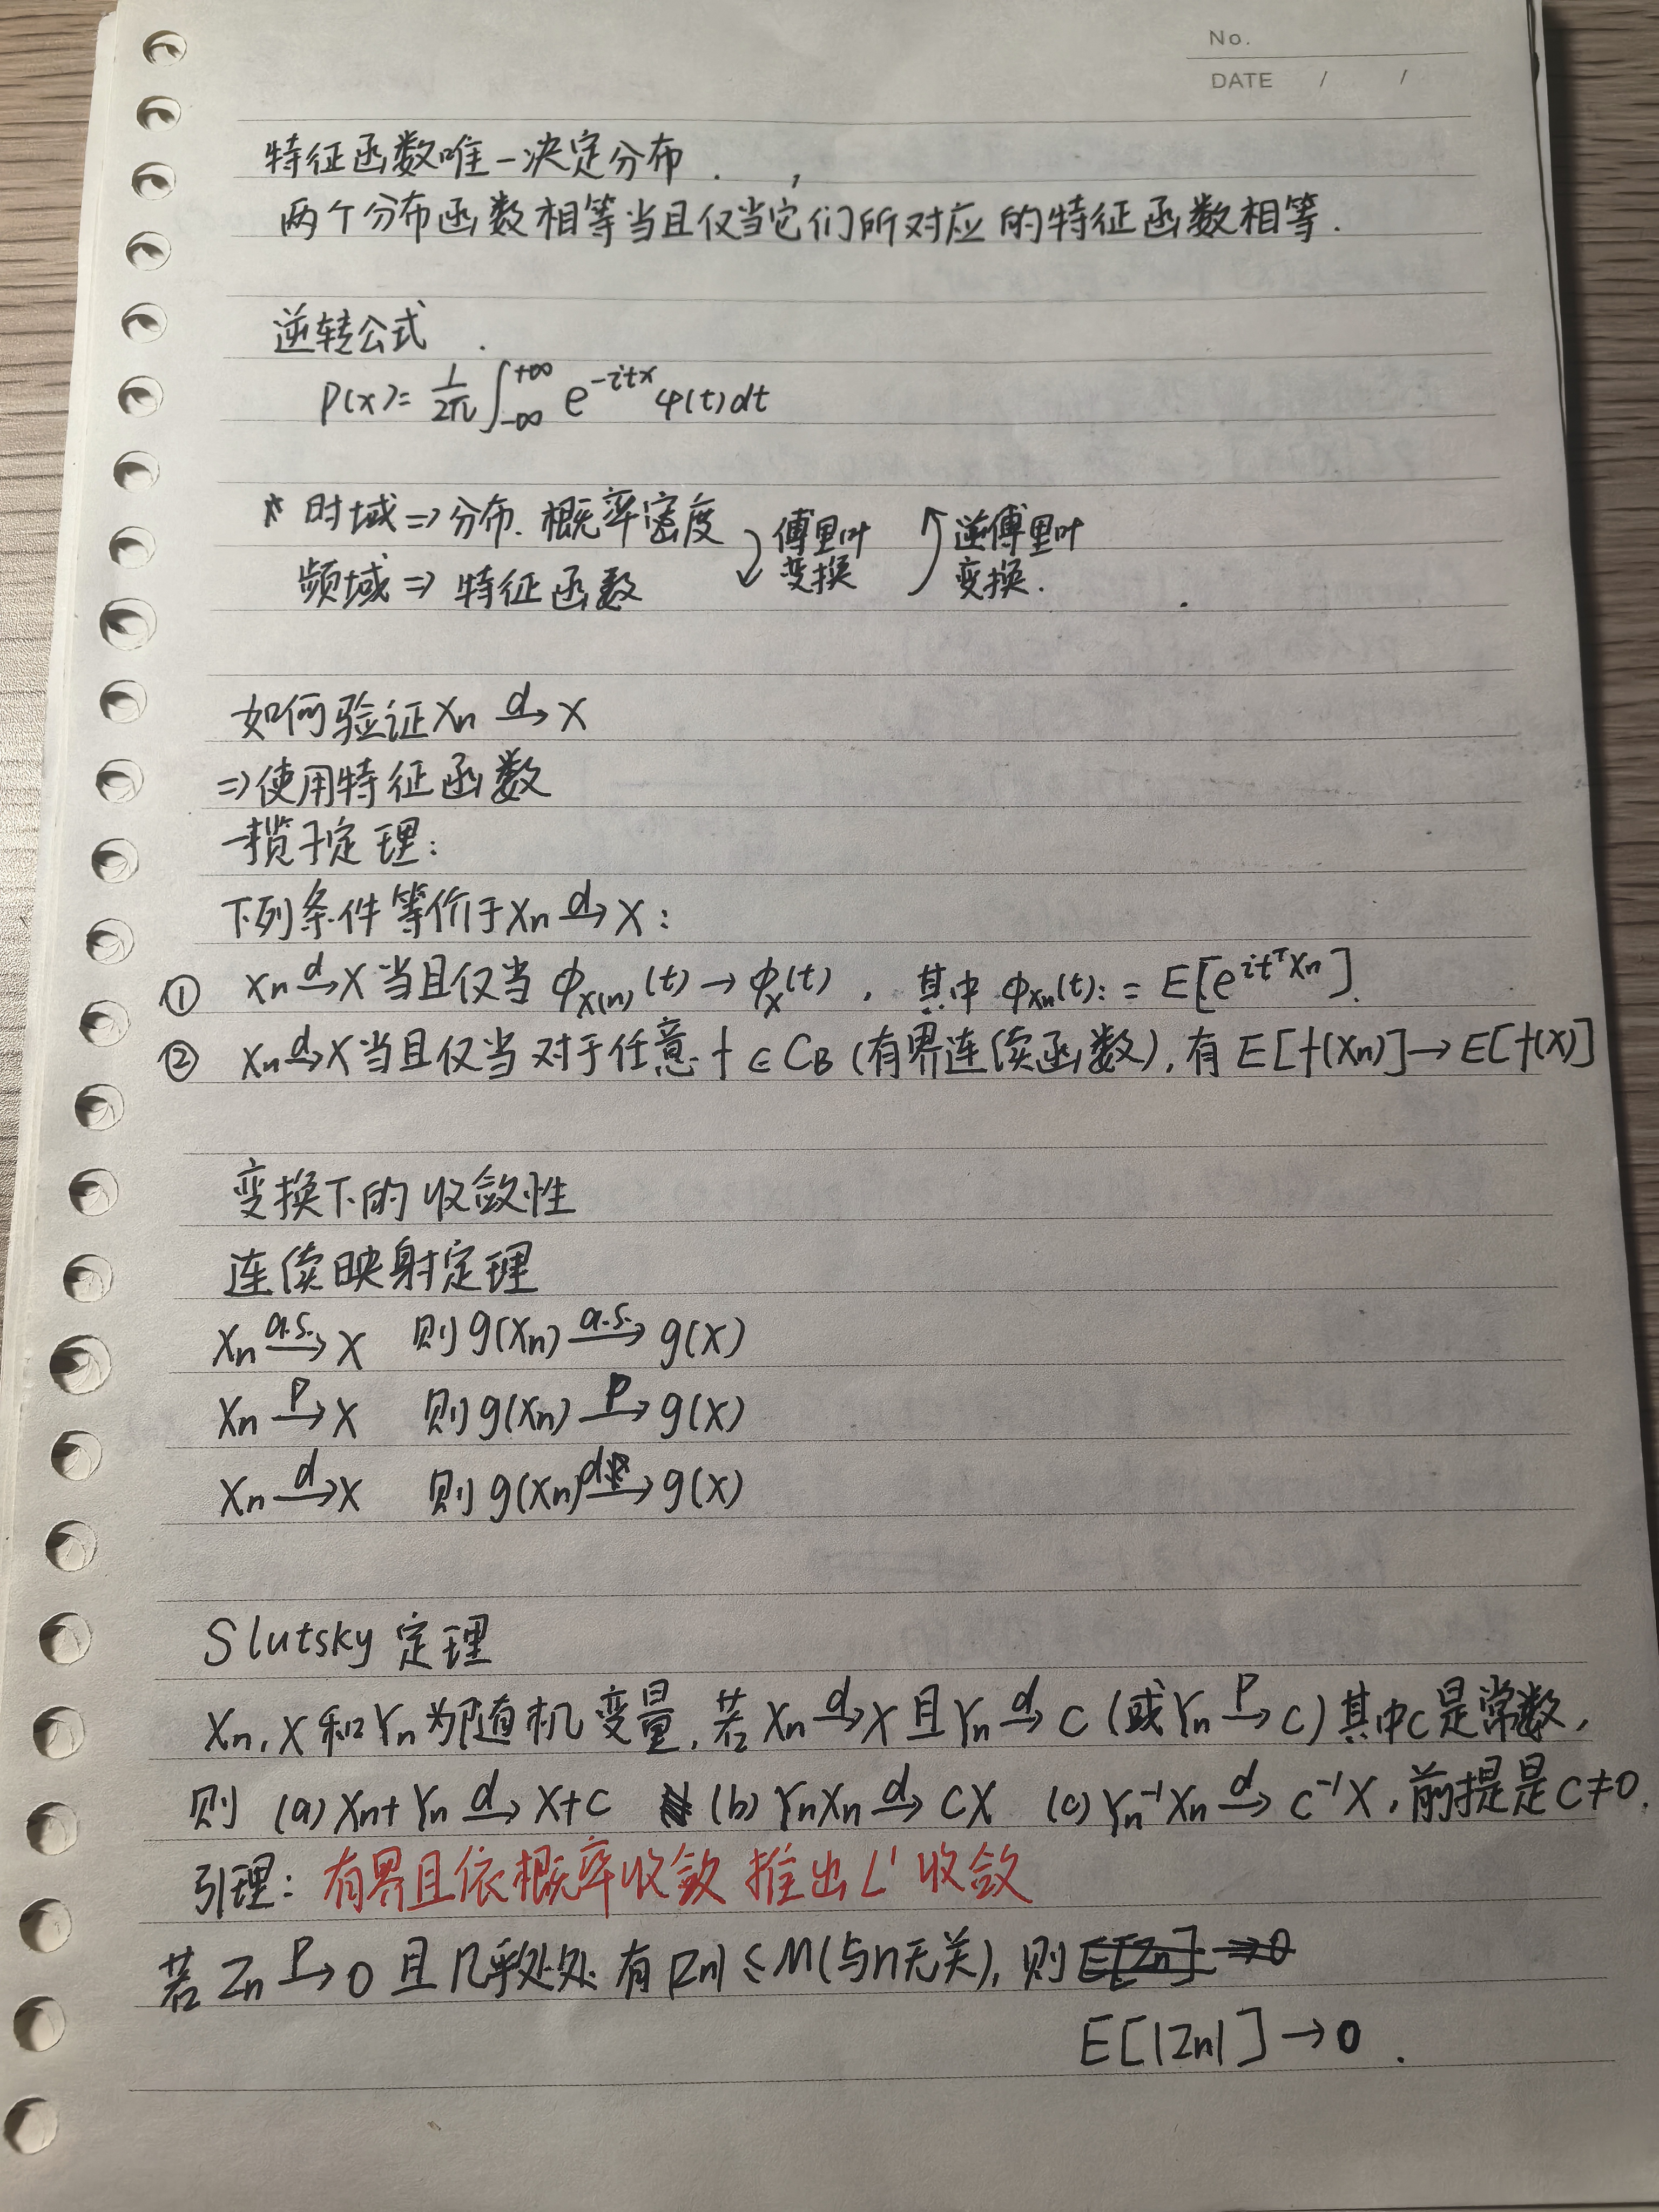 No.
DATE / /
特征函数唯一决定分布.
两个分布函数相等当且仅当它们所对应的特征函数相等.
逆转公式
p(x)= 1/2π ∫_{-∞}^{+∞} e^{-itx} φ(t)dt
* 时域⇒分布.概率密度 傅里叶变换 逆傅里叶变换.
频域⇒ 特征函数
如何验证Xn →^d X
⇒使用特征函数
一揽子定理:
下列条件等价于Xn →^d X:
① Xn →^d X 当且仅当 ϕ_{X(n)}(t)→ϕ_X(t), 其中 ϕ_{Xn}(t):= E[e^{it^T Xn}].
② Xn →^d X 当且仅当 对于任意 f∈C_B (有界连续函数), 有 E[f(Xn)]→E[f(X)]
变换下的收敛性
连续映射定理
Xn →^{a.s.} X 则 g(Xn) →^{a.s.} g(X)
Xn →^P X 则 g(Xn) →^P g(X)
Xn →^d X 则 g(Xn) →^d g(X)
Slutsky 定理
Xn, X 和 Yn 为随机变量, 若 Xn →^d X 且 Yn →^d C (或 Yn →^P C) 其中C是常数,
则 (a) Xn+Yn →^d X+C (b) YnXn →^d CX (c) Yn^{-1}Xn →^d C^{-1}X, 前提是C≠0.
引理: 有界且依概率收敛 推出 L^1 收敛
若 Zn →^P 0 且 几乎处处 有 |Zn| ≤ M(与n无关), 则 E[Zn]→0
E[|Zn|]→0.